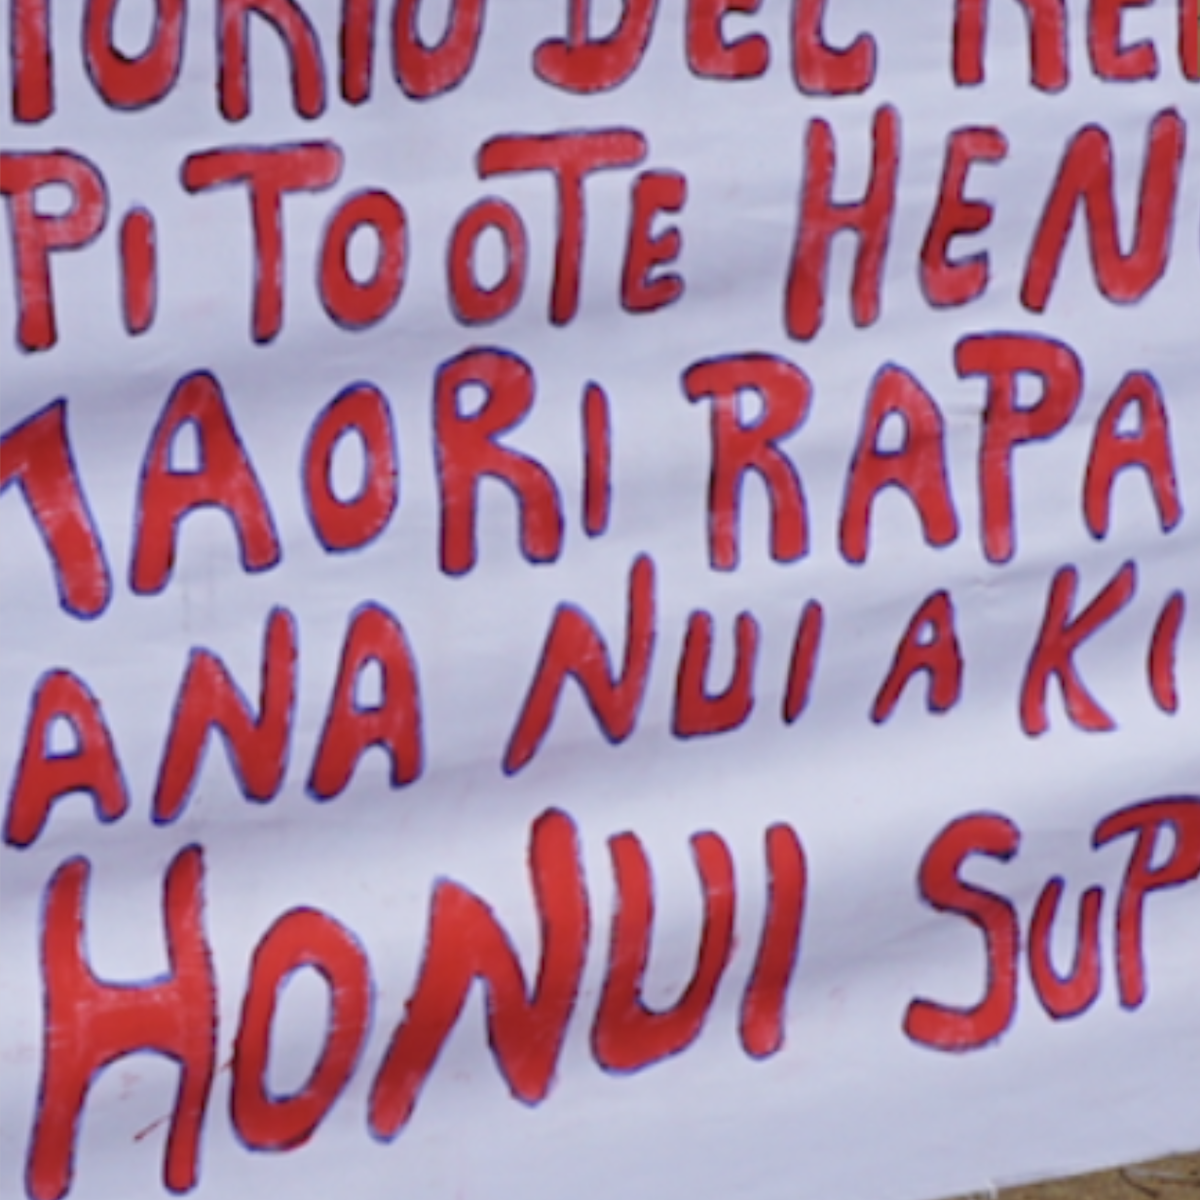 TORIO DEL REI
PI TO OTE HEN
MAORI RAPA
ANA NUI A KI
HONUI SUP